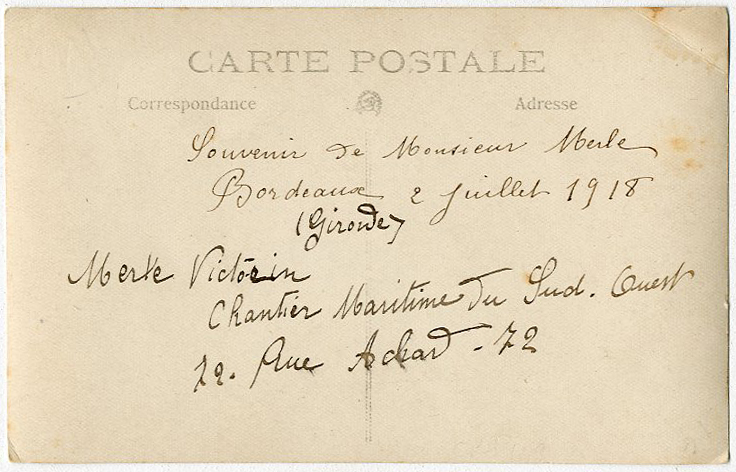 CARTE POSTALE
Correspondance Adresse
Souvenir de Monsieur Merle
Bordeaux 2 Juillet 1918
(Gironde)
Merle Victorin
Chantier Maritime Du Sud. Ouest
72. Rue Achard - 72